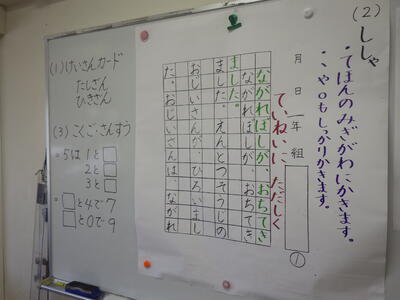 (2) ししゃ
・てほんのみぎがわにかきます。
・、や。もしっかりかきます。
月 日
1年 組
ていねいに ただしく
ながれぼしが おちてき
ながれぼしが おちてき
ました。
ました。えんとつそうじの
おじいさんが ひろいまし
た。おじいさんは ながれ
①
(1) けいさんカード
たしざん
ひきざん
(3) こくご・さんすう
・5は 1と□
2と□
3と□
・□と4で7
□と0で9